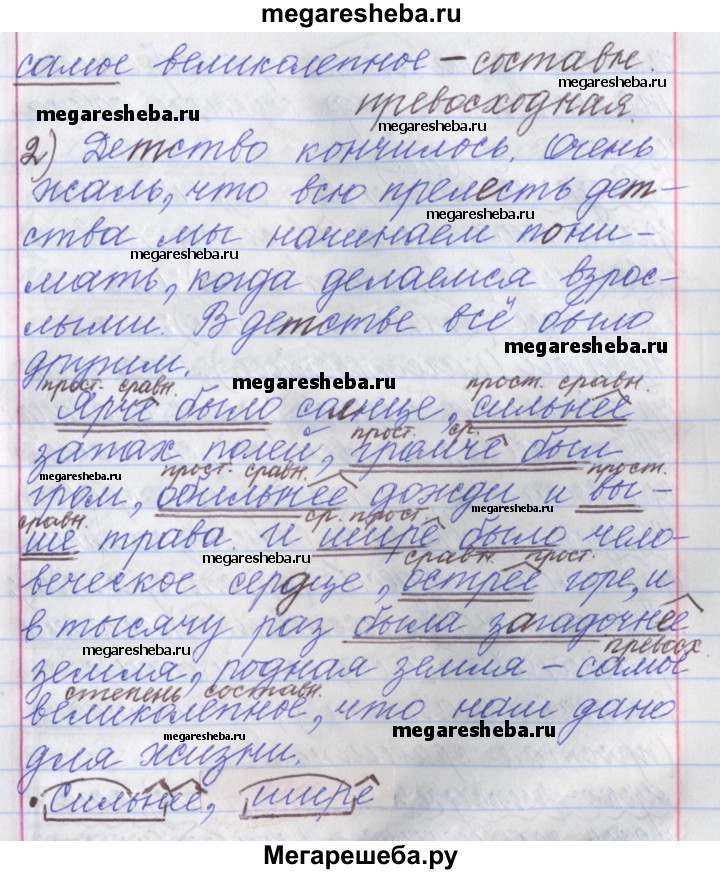 megaresheba.ru
самое великолепное – составн.
megaresheba.ru
превосходная.
megaresheba.ru
megaresheba.ru
2) Детство кончилось. Очень
жаль, что всю прелесть дет-
megaresheba.ru
ства мы начинаем пони-
megaresheba.ru
мать, когда делаемся взрос-
лыми. В детстве всё было
megaresheba.ru
другим.
прост. сравн. megaresheba.ru прост. сравн.
Ярче было солнце, сильнее
прост. ср.
запах полей, громче был
megaresheba.ru прост. сравн. прост.
гром, обильнее дожди и вы-
megaresheba.ru
сравн. ср. прост.
ше трава. И шире было чело-
megaresheba.ru сравн. прост.
веческое сердце, острее горе, и
в тысячу раз была загадочнее
megaresheba.ru превосх.
земля, родная земля – самое
степень составн.
великолепное, что нам дано
megaresheba.ru megaresheba.ru
для жизни.
• Сильнее, шире
Мегарешеба.ру